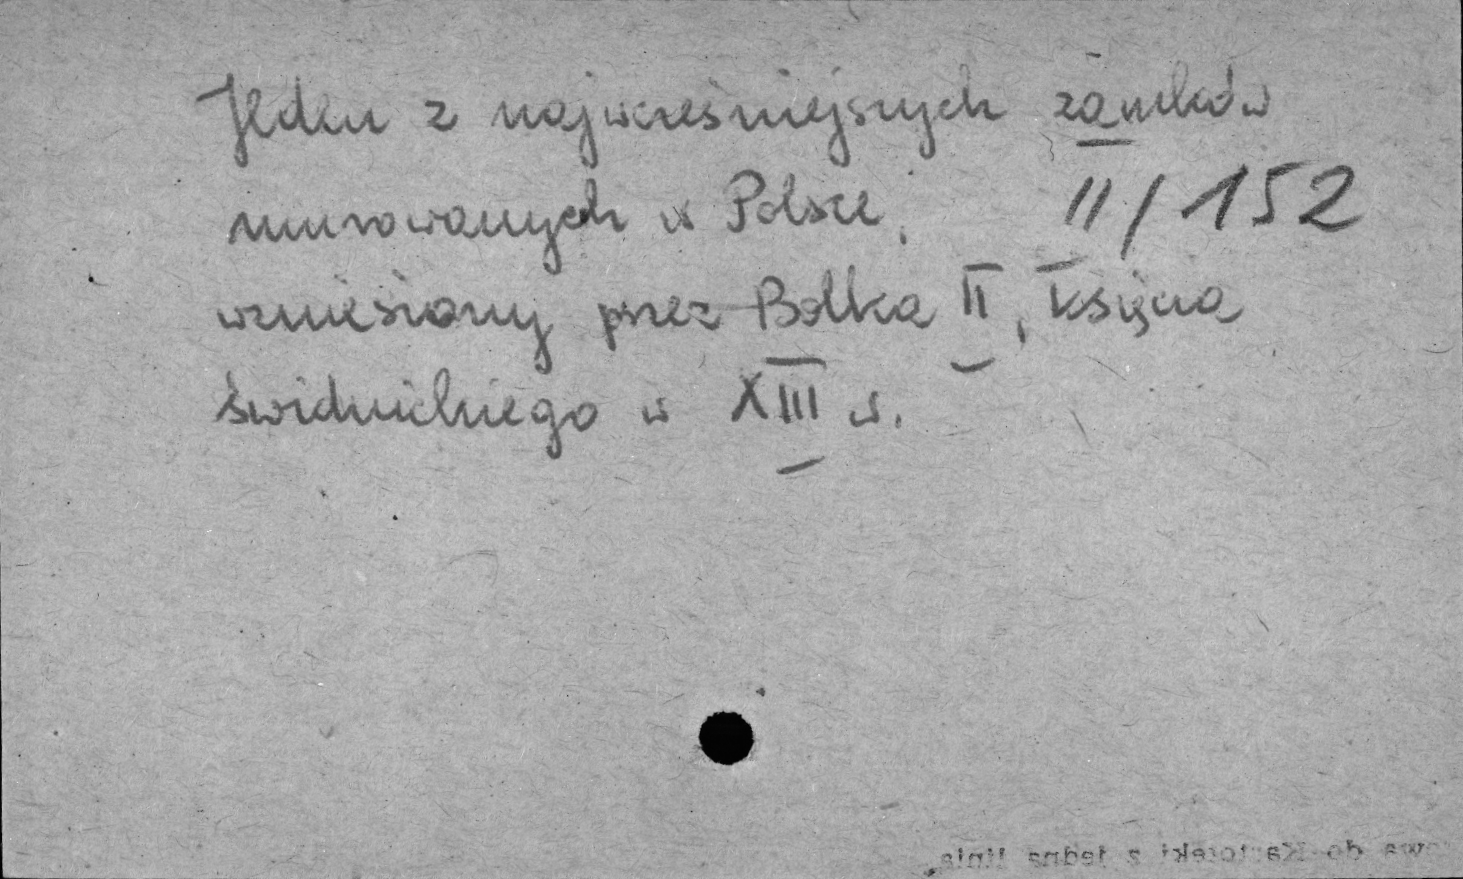 Jeden z najwcześniejszych zamków
murowanych w Polsce, II/152
wzniesiony przez Bolka II, księcia
świdnickiego w XIII w.
owa do Kartoteki z jedną linią